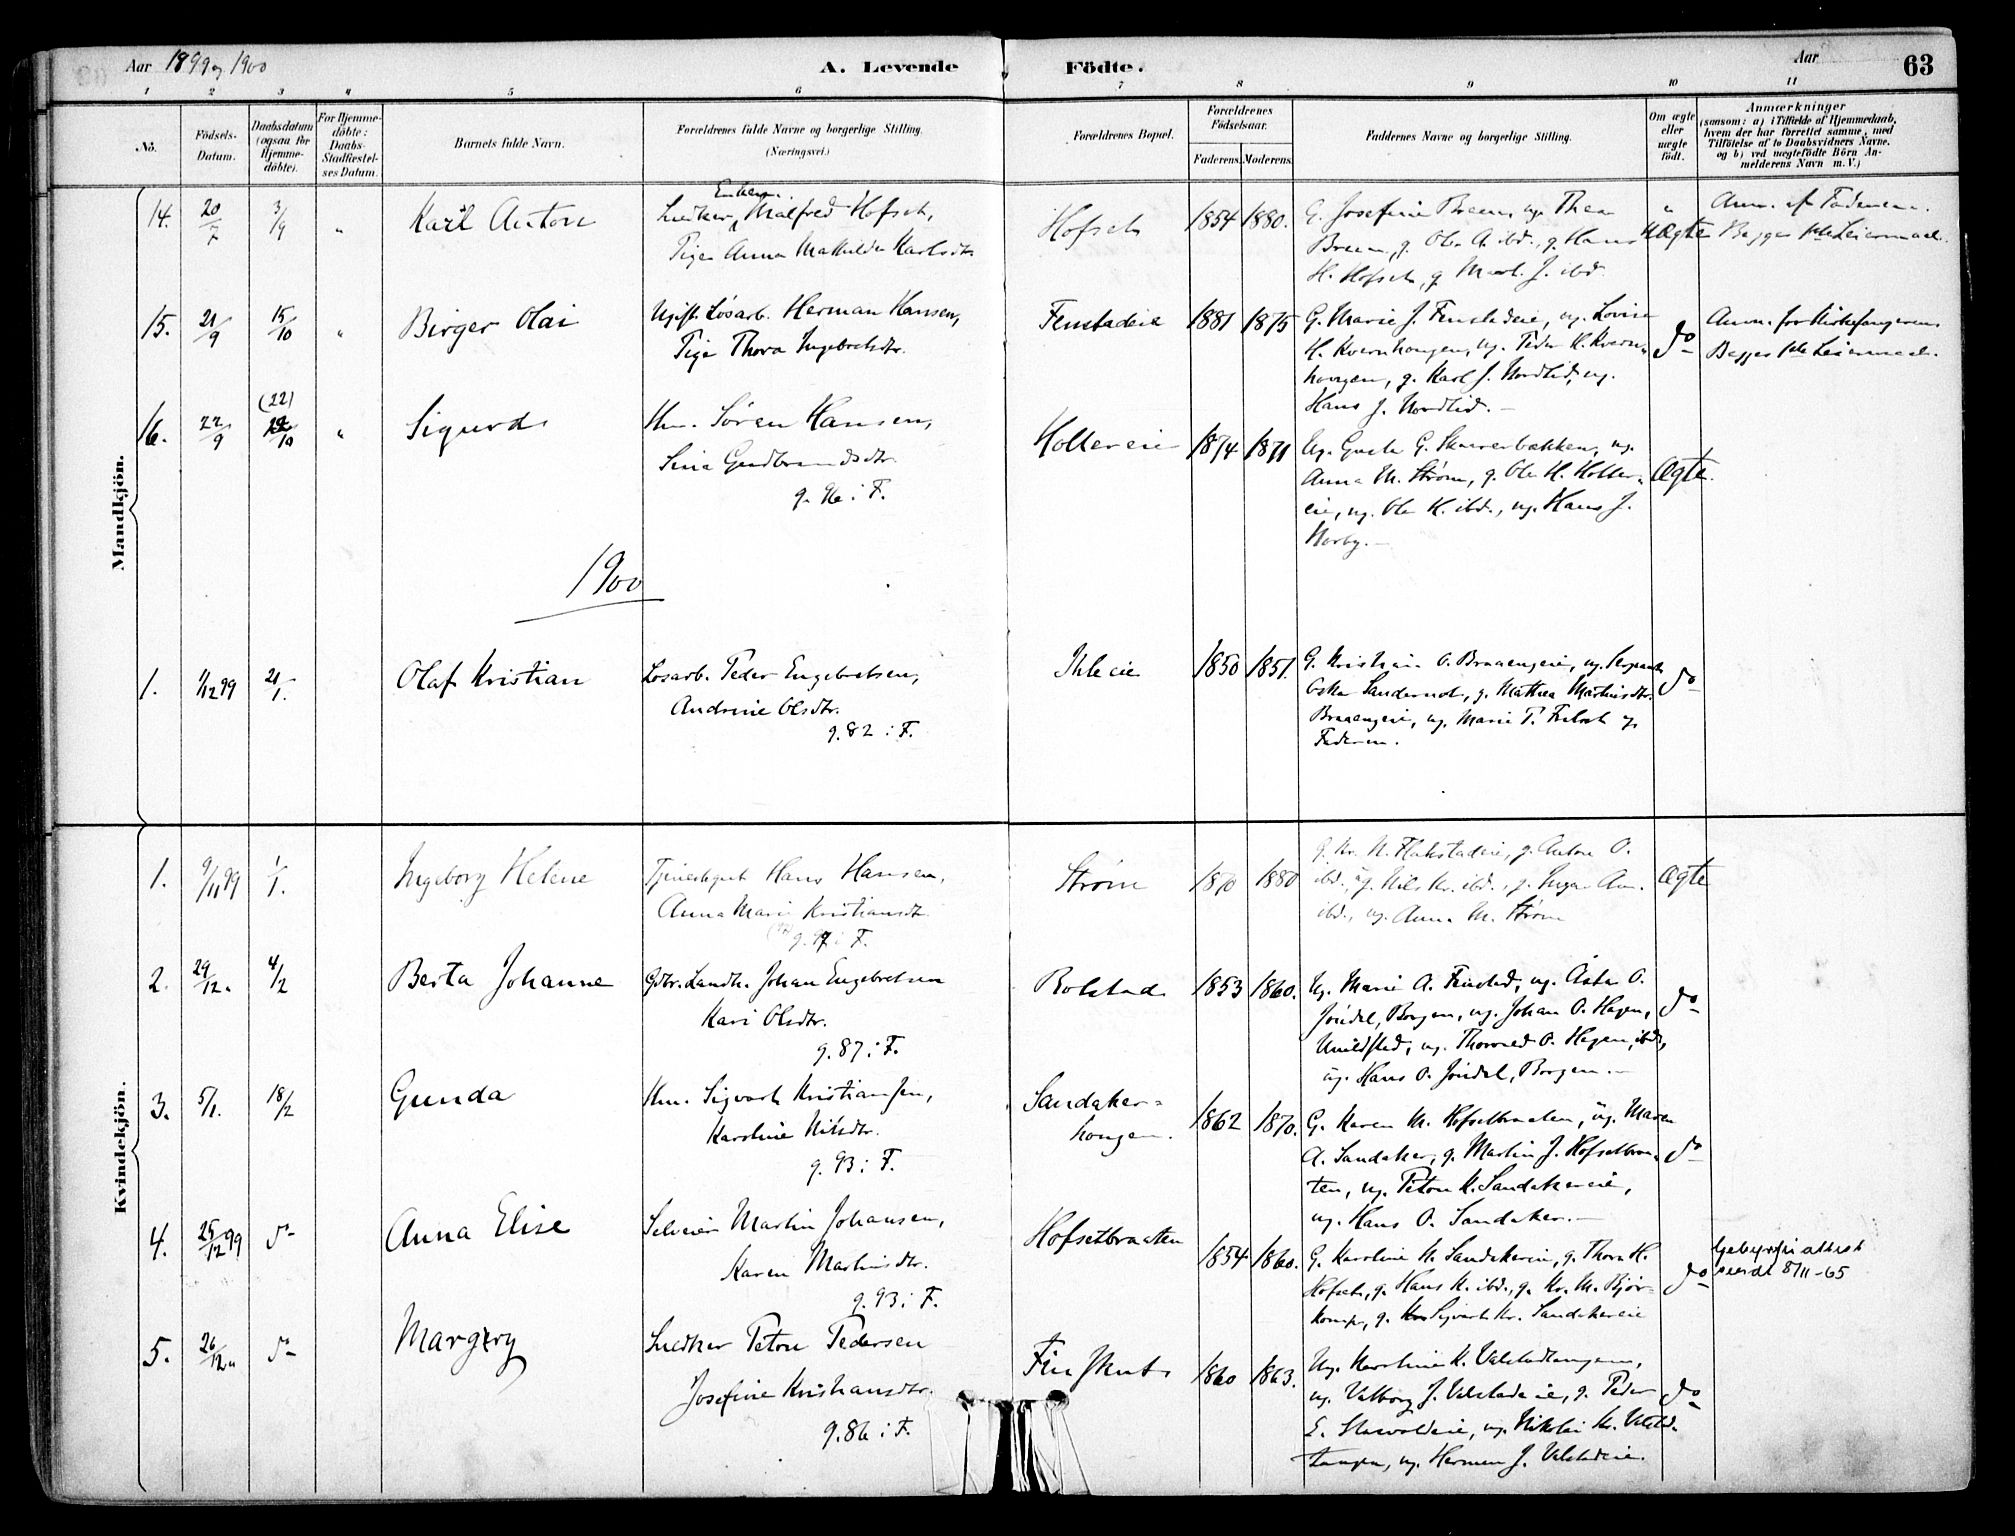 Aar 1899 og 1900
A. Levende Födte.
Aar
63
1 2 3 4 5 6 7 8 9 10 11
No.
Födsels-Datum.
Daabsdatum (ogsaa for Hjemme-döbte).
For Hjemme-döbte: Daabs-Stadfæstel-ses Datum.
Barnets fulde Navn.
Forældrenes fulde Navne og borgerlige Stilling.
(Næringsvei.)
Forældrenes Bopæl.
Forældrenes Födselsaar.
Faderens. Moderens.
Faddernes Navne og borgerlige Stilling.
Om ægte eller uægte födt.
Anmærkninger
(saasom: a) i Tilfælde af Hjemmedaab, hvem der har forrettet samme, med Tilföielse af to Daabsvidners Navne. og b) ved uægtefödte Börn An-melderens Navn m. V.)
Mandkjön.
14. 20/7 3/9 " Karl Anton
Enkem.
Snedker, Malfred Hofset,
Pige Anna Mathilda Karlsdtr.
Hofseth 1854 1880.
G. Josefine Breen, ug. Thea
Breen, g. Ole A. ibd., g. Hans
H. Hofseth, g. Mart. J. ibd.
" Uægte
Anm. af Faderen.
Begges 1ste Leiermaal.
15. 21/9 15/10 " Birger Olai
Ugift Løsarb. Herman Hansen,
Pige Thora Ingebretsdtr.
Fenstadeie 1881 1875
G. Marie J. Fenstadeie, ug. Lovise
H. Kvernhougen, ug. Peder K. Kvern-
hougen, g. Karl J. Nordlid, ug.
Hans J. Nordlid. -
do
Anm. for Kirkesangeren
Begges 1ste Leiermaal.
16. 22/9 (22) /10 " Sigurd
Hm. Søren Hansen,
Sina Gudbrandsdtr.
g. 96 i F.
Holtereie 1874 1871
Anna M. Strøm, g. Ole H. Holter-
eie, ug. Ole K. ibd., ug. Hans J.
Norby. -
Ægte.
1900
1. 1/12 99 21/1. Olaf Kristian
Løsarb. Peder Engebretsen,
Andrine Olsdtr.
g. 82 i F.
Ihleeie 1850 1851.
G. Kristian O. Braaengeie, ug. Sergeant
Oskar Sandernot, g. Mathea Martinsdtr.
Braaengeie, ug. Marie P. og
Faderen.
do
Kvindekjön.
1. 9/11 99 1/1. Ingeborg Helene
Tjenestegut Hans Hansen,
Anna Marie Kristiansdtr.
g. 97 i F.
Strøm 1870 1880
g. Kr. N. Flakstadeie, g. Anton O.
ibd., ug. Nils Kr. ibd., g. Inga An.
ibd., ug. Anna M. Strøm
Ægte
2. 29/12. 4/2 Berta Johanne
Gdbr. Landh. Johan Engebretsen
Kari Olsdtr.
g. 87 i F.
Rolstad 1853 1860.
Ug. Marie A. Finstad, ug. Åsta O.
Jøndal, Borgen, ug. Johan O. Hagen,
Ullensaker, ug. Thorvald O. Hagen, ibd.,
ug. Hans O. Jøndal, Borgen. -
do
3. 5/1. 18/2 Gunda
Hm. Sigvart Kristiansen,
Karoline Nilsdtr.
g. 93 i F.
Sandaker-
hougen. 1862 1870.
G. Karen M. Hofsetbraaten, ug. Maren
A. Sandaker, g. Martin J. Hofsetbraa-
ten, ug. Peton K. Sandakereie,
ug. Hans O. Sandaker. -
do
4. 25/12 99 do Anna Elise
Selveier Martin Johansen,
Karen Martinsdtr.
g. 93 i F.
Hofsetbraaten 1854 1860.
G. Karoline N. Sandakereie, g. Thora H.
Hofseth, g. Hans K. ibd., g. Kr. M. Bjør-
komp, g. Sigvart Kr. Sandakereie
do
Gebyrfri attest
utstedt 8/11-65
5. 26/12 " do Margery
Snedker Peton Pedersen
Josefine Kristiansdtr.
g. 86 i F.
1860 1863.
Ug. Karoline K. Valstadtangen,
ug. Valborg J. Valstadeie, g. Peder
E. , ug. Nikolai Kr. Valstad-
tangen, ug. Herman J. Valstadeie.
do